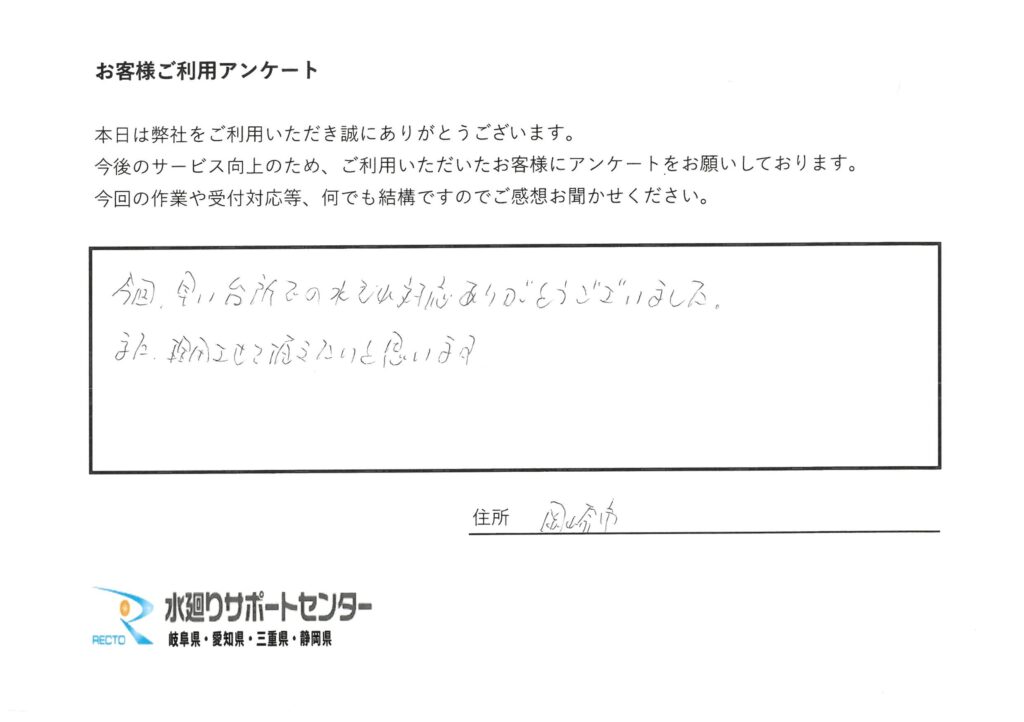 お客様ご利用アンケート
本日は弊社をご利用いただき誠にありがとうございます。
今後のサービス向上のため、ご利用いただいたお客様にアンケートをお願いしております。
今回の作業や受付対応等、何でも結構ですのでご感想お聞かせください。
今回、早い台所での水もれ対応ありがとうございました。
また、利用させて頂きたいと思います
住所 岡崎市
RECTO
水廻りサポートセンター
岐阜県・愛知県・三重県・静岡県